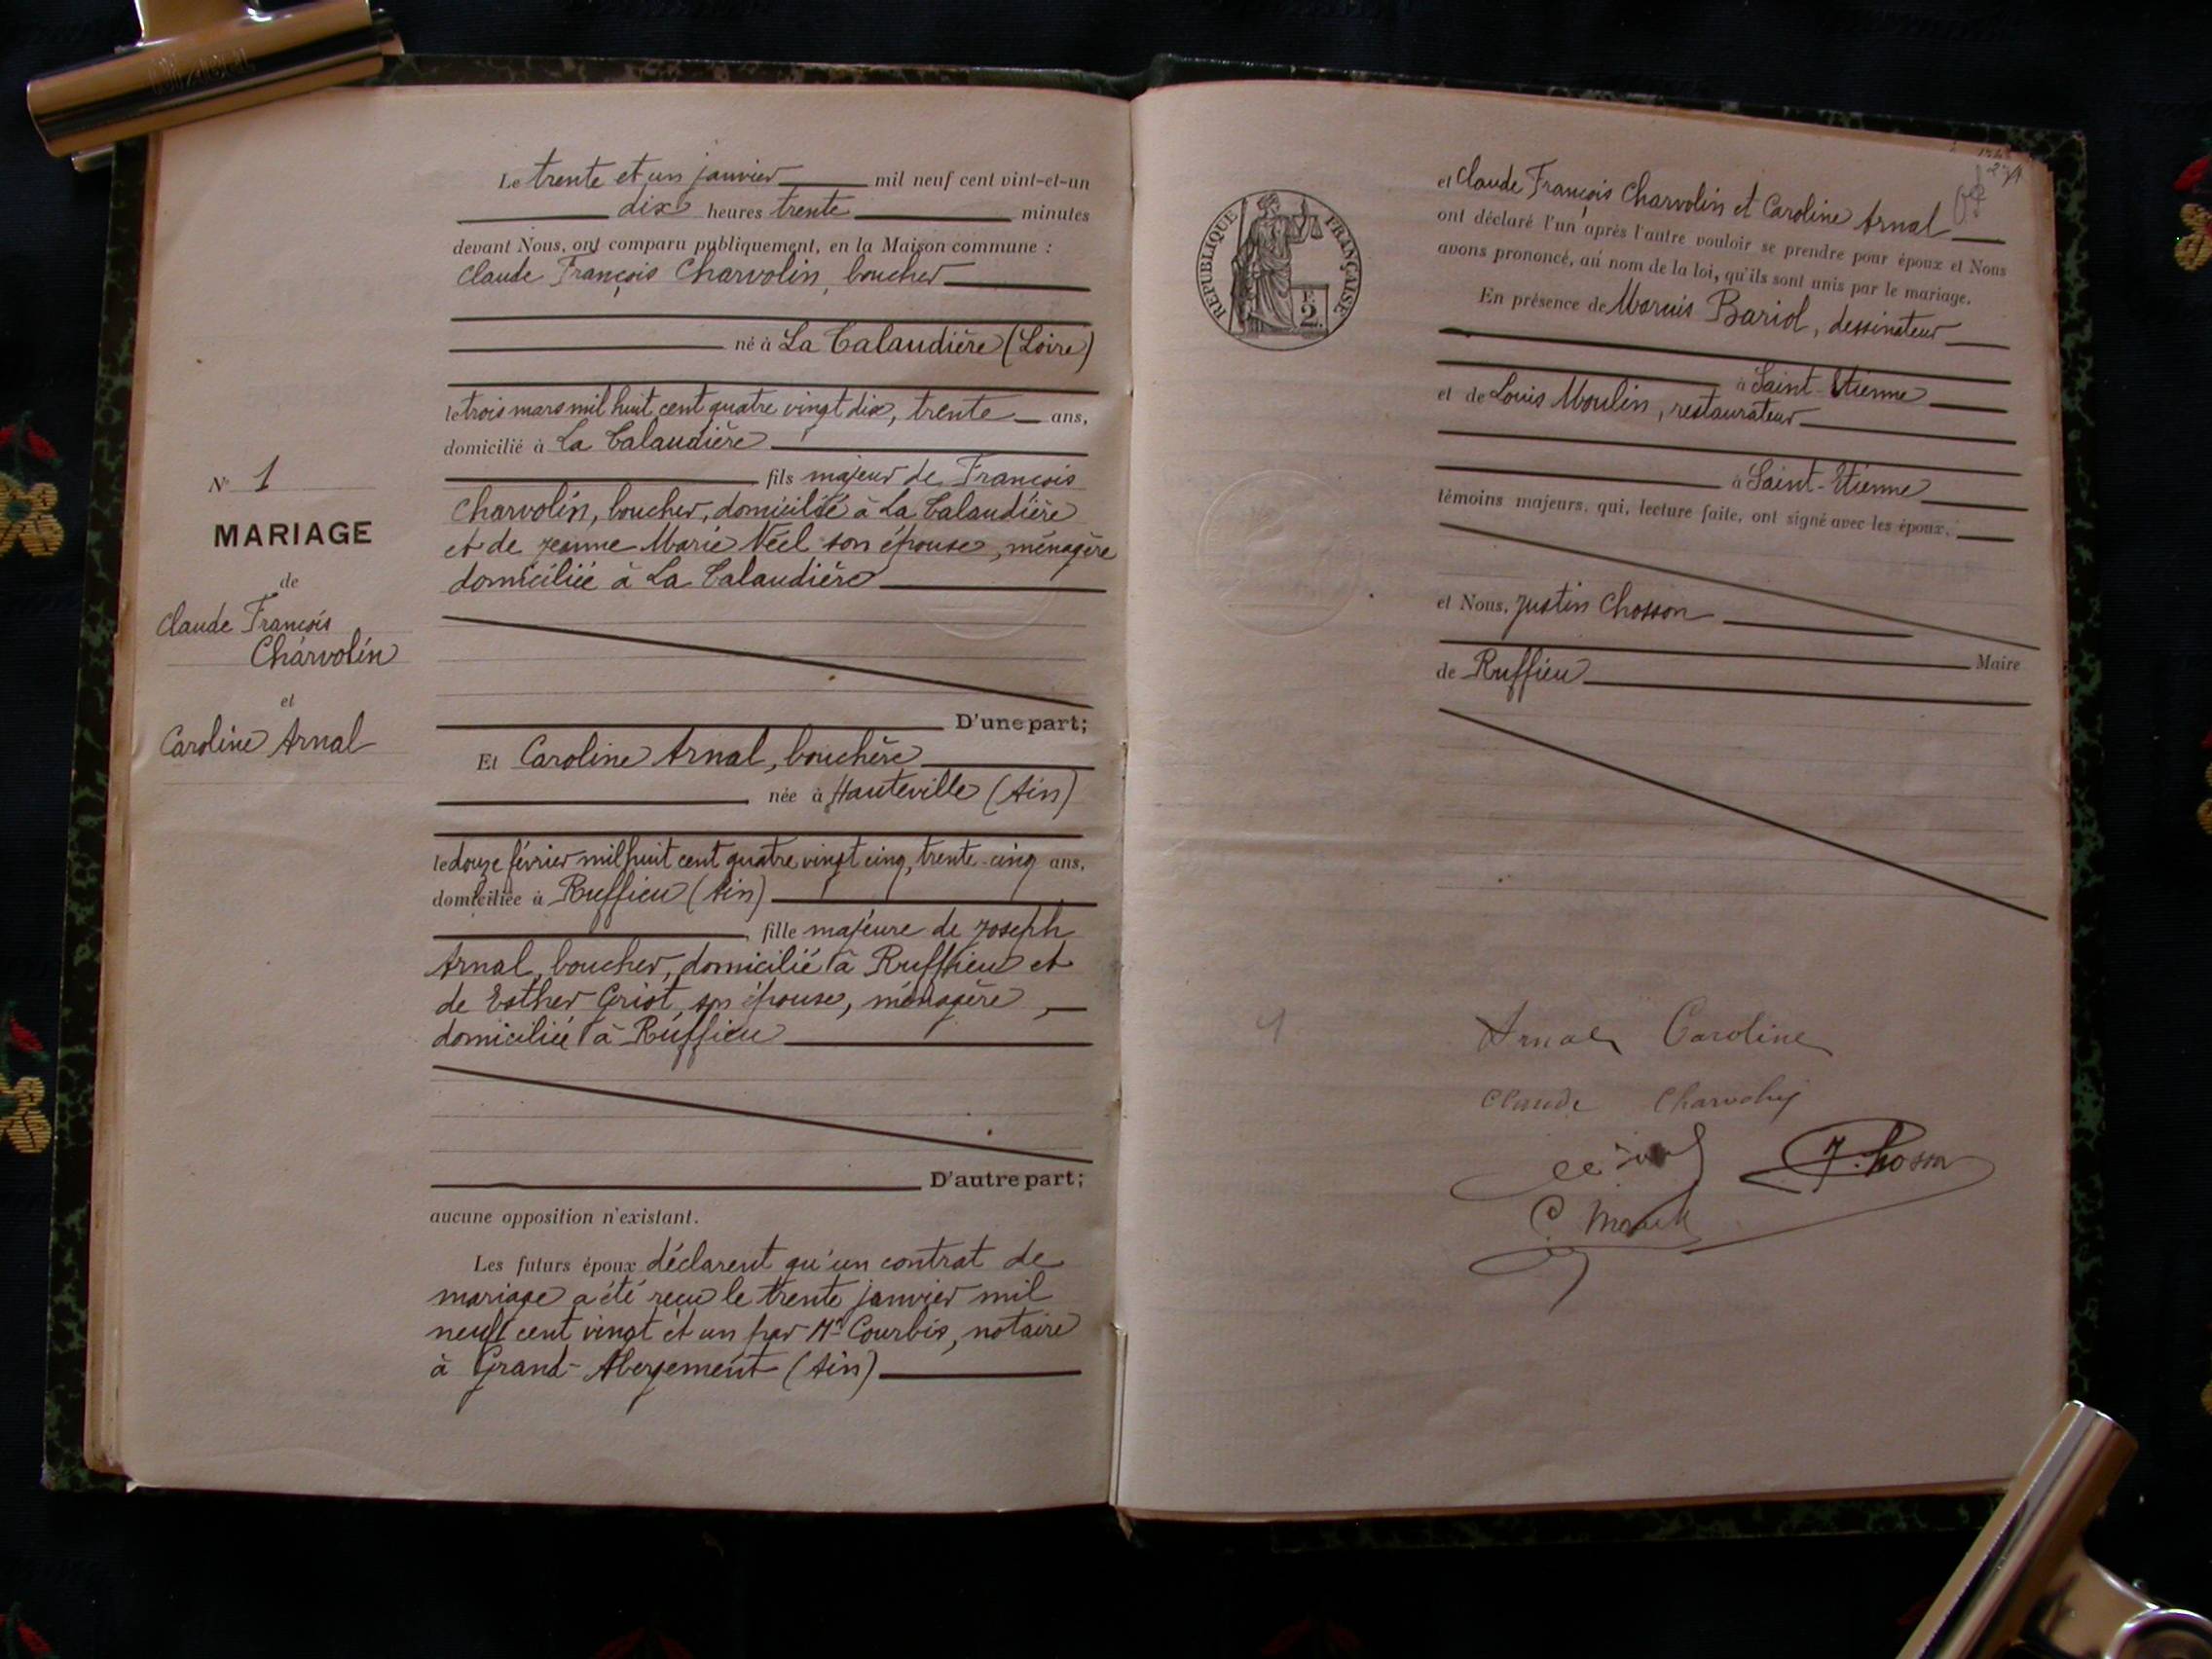 Le trente et un janvier mil neuf cent vint-et-un
dix heures trente minutes
devant Nous, ont comparu publiquement, en la Maison commune :
Claude François Charvolin, boucher
né à La Talaudière (Loire)
le trois mars mil huit cent quatre vingt dix, trente ans,
domicilié à La Talaudière
fils majeur de François
Charvolin, boucher, domicilié à La Talaudière
et de Jeanne Marie Néel son épouse, ménagère
domiciliée à La Talaudière
D'une part;
Et Caroline Arnal, bouchère
née à Hauteville (Ain)
le douze février mil huit cent quatre vingt cinq, trente-cinq ans,
domiciliée à Ruffieu (Ain)
fille majeure de Joseph
Arnal, boucher, domicilié à Ruffieu et
de Esther Griot, son épouse, ménagère,
domiciliée à Ruffieu
D'autre part;
aucune opposition n'existant.
Les futurs époux déclarent qu'un contrat de
mariage a été reçu le trente janvier mil
neuf cent vingt et un par Me Courbis, notaire
à Grand-Abergement (Ain)
N° 1
MARIAGE
de
Claude François
Charvolin
et
Caroline Arnal
RÉPUBLIQUE FRANÇAISE
F.
2
et Claude François Charvolin et Caroline Arnal
ont déclaré l'un après l'autre vouloir se prendre pour époux et Nous
avons prononcé, au nom de la loi, qu'ils sont unis par le mariage.
En présence de Marius Bariol, dessinateur
à Saint-Etienne
et de Louis Moulin, restaurateur
à Saint-Etienne
témoins majeurs, qui, lecture faite, ont signé avec les époux.
et Nous, Justin Chosson
Maire
de Ruffieu
Arnal Caroline
Claude Charvolin
J. Chosson